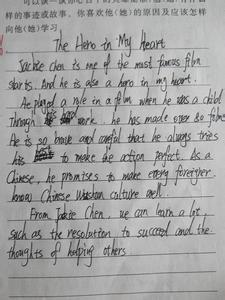 可以谈一谈你心目中的英雄是谁,
样的事迹或故事。你喜欢他(她)的原因及应该怎样
向他(她)学习
The Hero in My Heart
Jackie Chen is one of the most famous film
stars. And he is also a hero in my heart.
He played a role in a film when he was a child
Through his work. he has made over 80 films
He is so brave and careful that he always tries
his best to make the action perfect. As a
Chinese, he promises to make every foreigner
know Chinese culture well.
From Jackie Chen, we can learn a lot,
such as the resolution to succeed and the
thoughts of helping others.